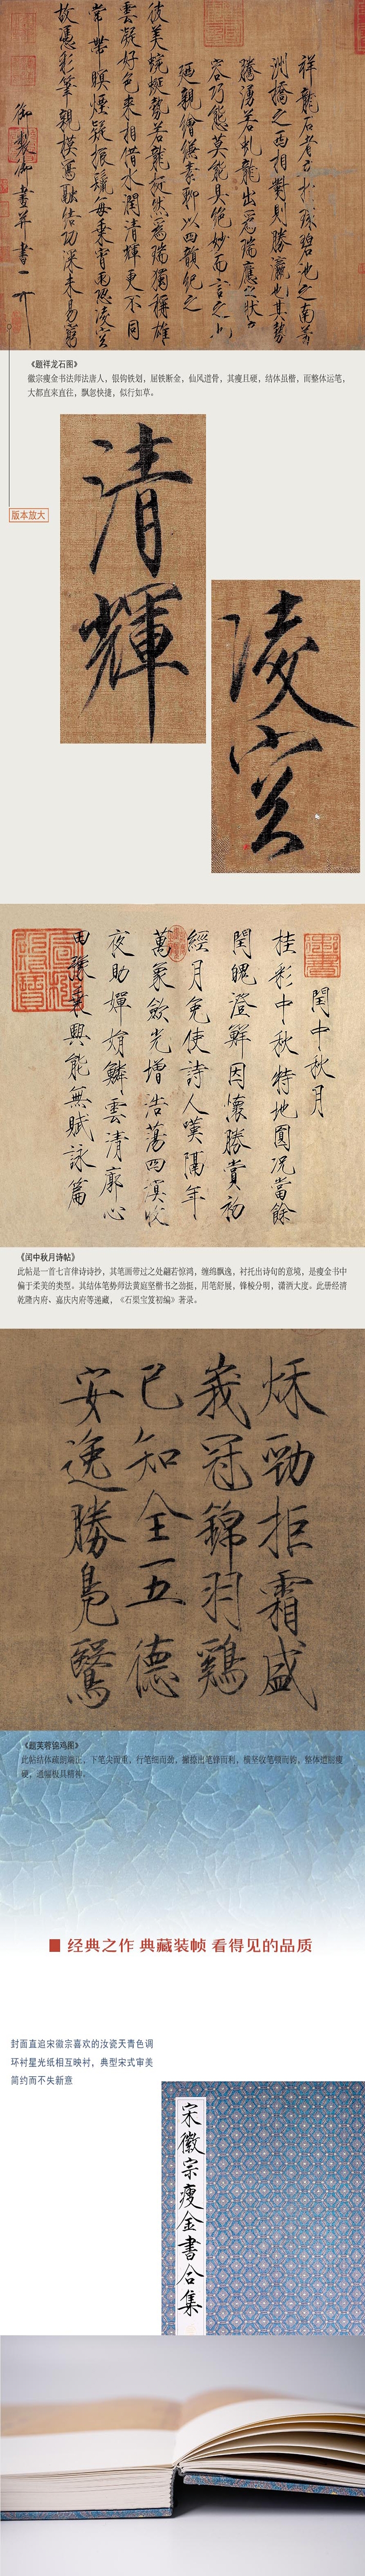 祥龍石者立於環碧池之南芳
洲橋之西相對則勝瀛也其勢
騰湧若虬龍出為瑞應之狀
容巧態莫能具絕妙而言之也
廼親繪縑素聊以四韻紀之
彼美蜿蜒勢若龍挺然為瑞獨稱雄
雲凝好色來相借水潤清輝更不同
常帶暝煙疑振鬣每乘宵雨恐凌空
故憑彩筆親模寫融結功深未易窮
御製御畫并書
《题祥龙石图》
徽宗瘦金书法师法唐人，银钩铁划，屈铁断金，仙风道骨，其瘦且硬，结体虽楷，而整体运笔，
大都直来直往，飘忽快捷，似行如草。
版本放大
清輝
凌空
閏中秋月
桂彩中秋特地圓況當餘
閏魄澄鮮因懷勝賞初
經月免使詩人嘆隔年
萬象斂光增浩蕩四溟收
夜助嬋娟鱗雲清廓心
田豫乘興能無賦詠篇
《闰中秋月诗帖》
此帖是一首七言律诗诗抄，其笔画带过之处翩若惊鸿，缠绵飘逸，衬托出诗句的意境，是瘦金书中
偏于柔美的类型。其结体笔势师法黄庭坚楷书之劲挺，用笔舒展，锋棱分明，潇洒大度。此册经清
乾隆内府、嘉庆内府等递藏，《石渠宝笈初编》著录。
秋勁拒霜盛
峩冠錦羽鷄
已知全五德
安逸勝鳧鷖
《题芙蓉锦鸡图》
此帖结体疏朗端正，下笔尖而重，行笔细而劲，撇捺出笔锋而利，横竖收笔顿而钩，整体遒丽瘦
硬，逍媚极具精神。
经典之作 典藏装帧 看得见的品质
封面直追宋徽宗喜欢的汝瓷天青色调
环衬星光纸相互映衬，典型宋式审美
简约而不失新意
宋徽宗瘦金書合集